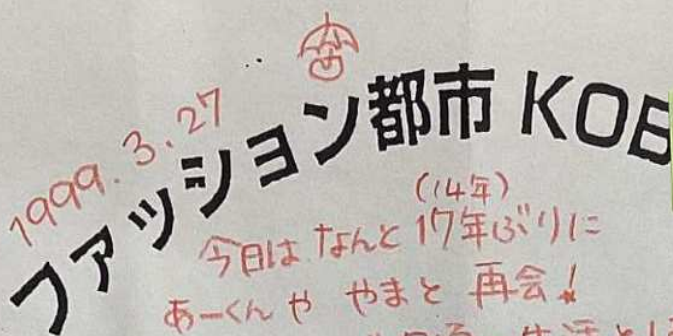 1999.3.27
ファッション都市 KOB
(14年)
今日は なんと 17年ぶりに
あーくんや やまと 再会!
生活と